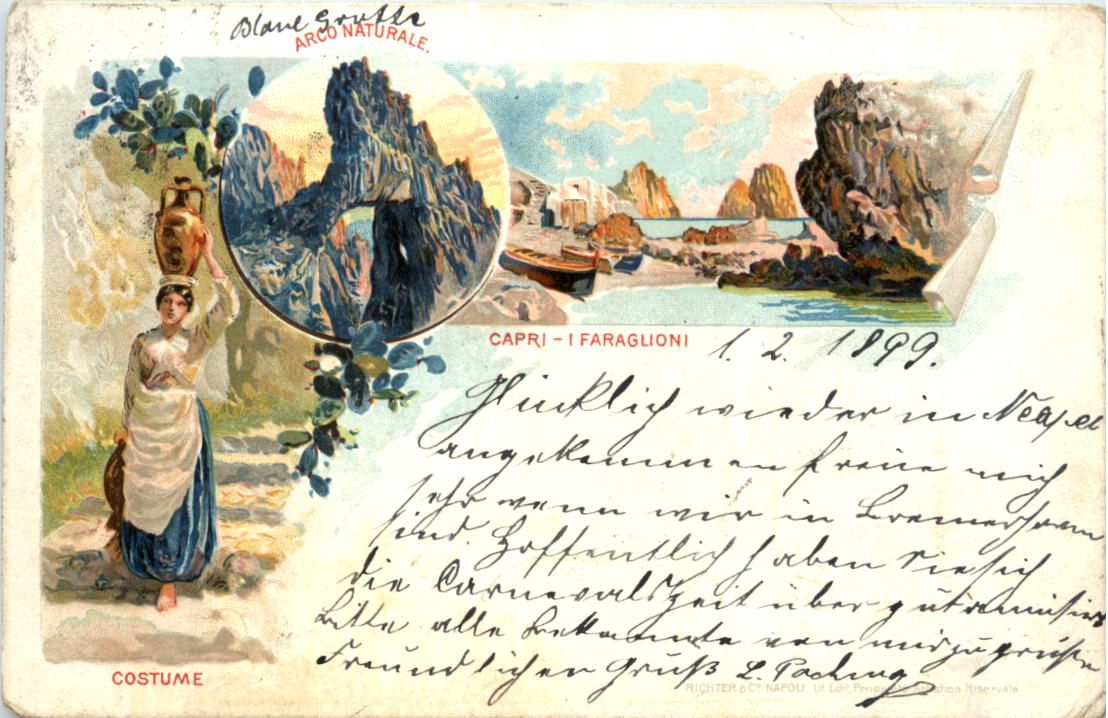 Blaue Grotte
ARCO NATURALE.
CAPRI - I FARAGLIONI
1. 2. 1899.
Glücklich wieder in Neapel
angekommen freue mich
sehr wenn wir in Bremerhaven
sind. Hoffentlich haben Sie sich
die Carnevalszeit über gut amüsirt
Bitte alle Bekannte von mir zu grüßen
Freundlichen Gruß L.
COSTUME
RICHTER & Co. NAPOLI. Lit. Edit. Riservata